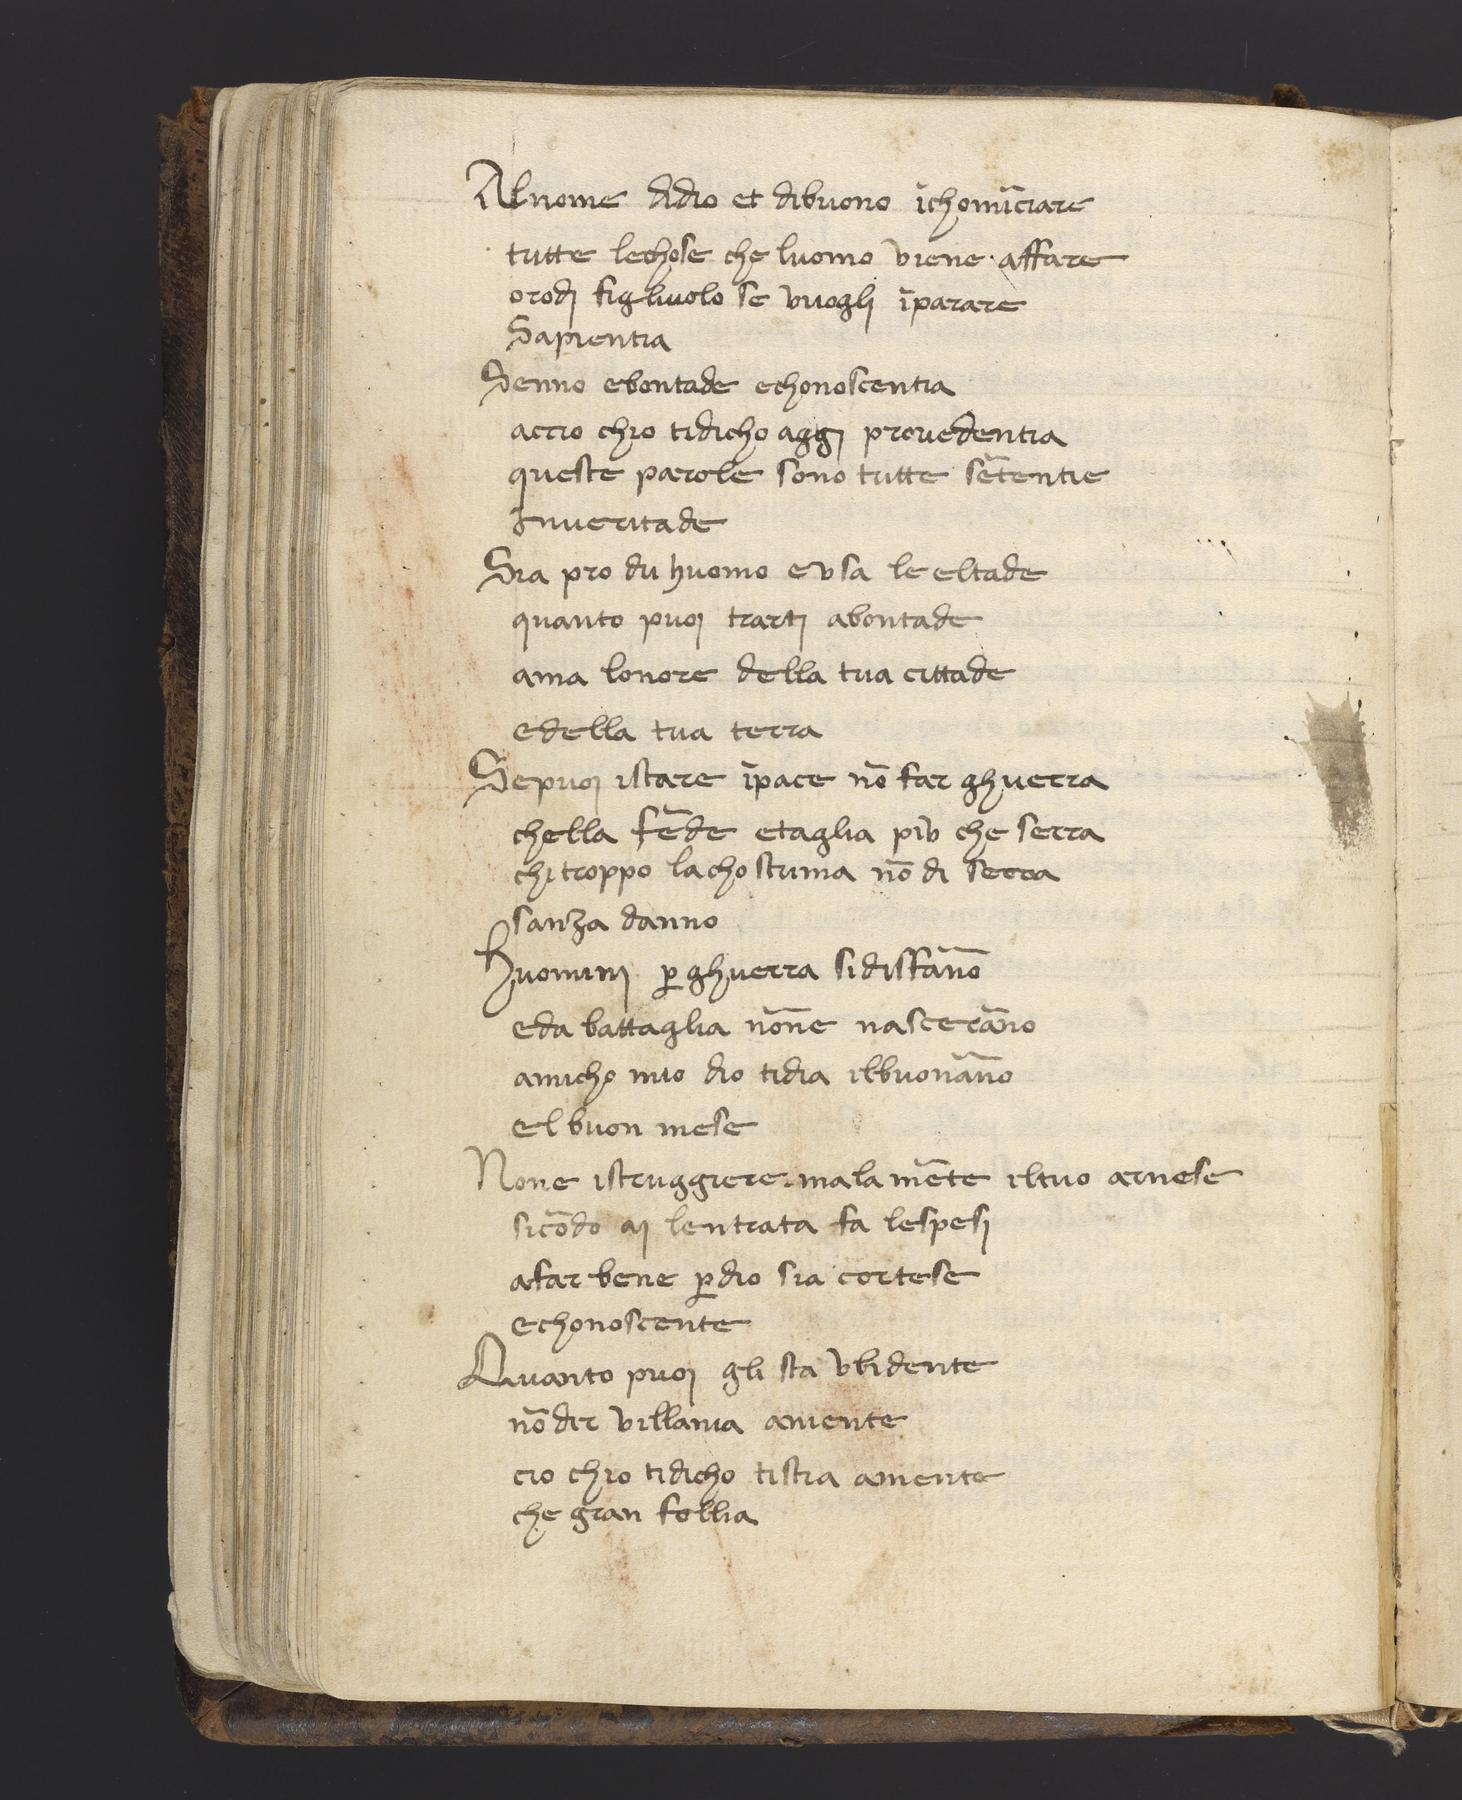 Al nome didio et dibuono īchomīciare
tutte lechose che luomo viene affare
orodj figliuolo se vuoglj īparare
Sapientia
Senno ebontade echonoscentia
accio chio tidicho aggj prouedentia
queste parole sono tutte sētentie
Inueritade
Sia pro du huomo e vsa le eltade
quanto puoj trartj abontade
ama lonore della tua cittade
edella tua terra
Sepuoj istare īpace nō far ghuerra
chella fēde etaglia piu che serra
chi troppo lachostuma nō di serra
sanza danno
Huominj ꝑ ghuerra sidisfāno
eda battaglia nōne nascerāno
amicho mio dio tidia ilbuonāno
el buon mese
None istruggiere mala mēte iltuo arnese
sicōdo aj lentrata fa lespesj
afar bene ꝑdio sia cortese
echonoscente
Quanto puoj gli sta vbidente
nō dir villania aniente
cio chio tidicho tistia amente
che gran follia